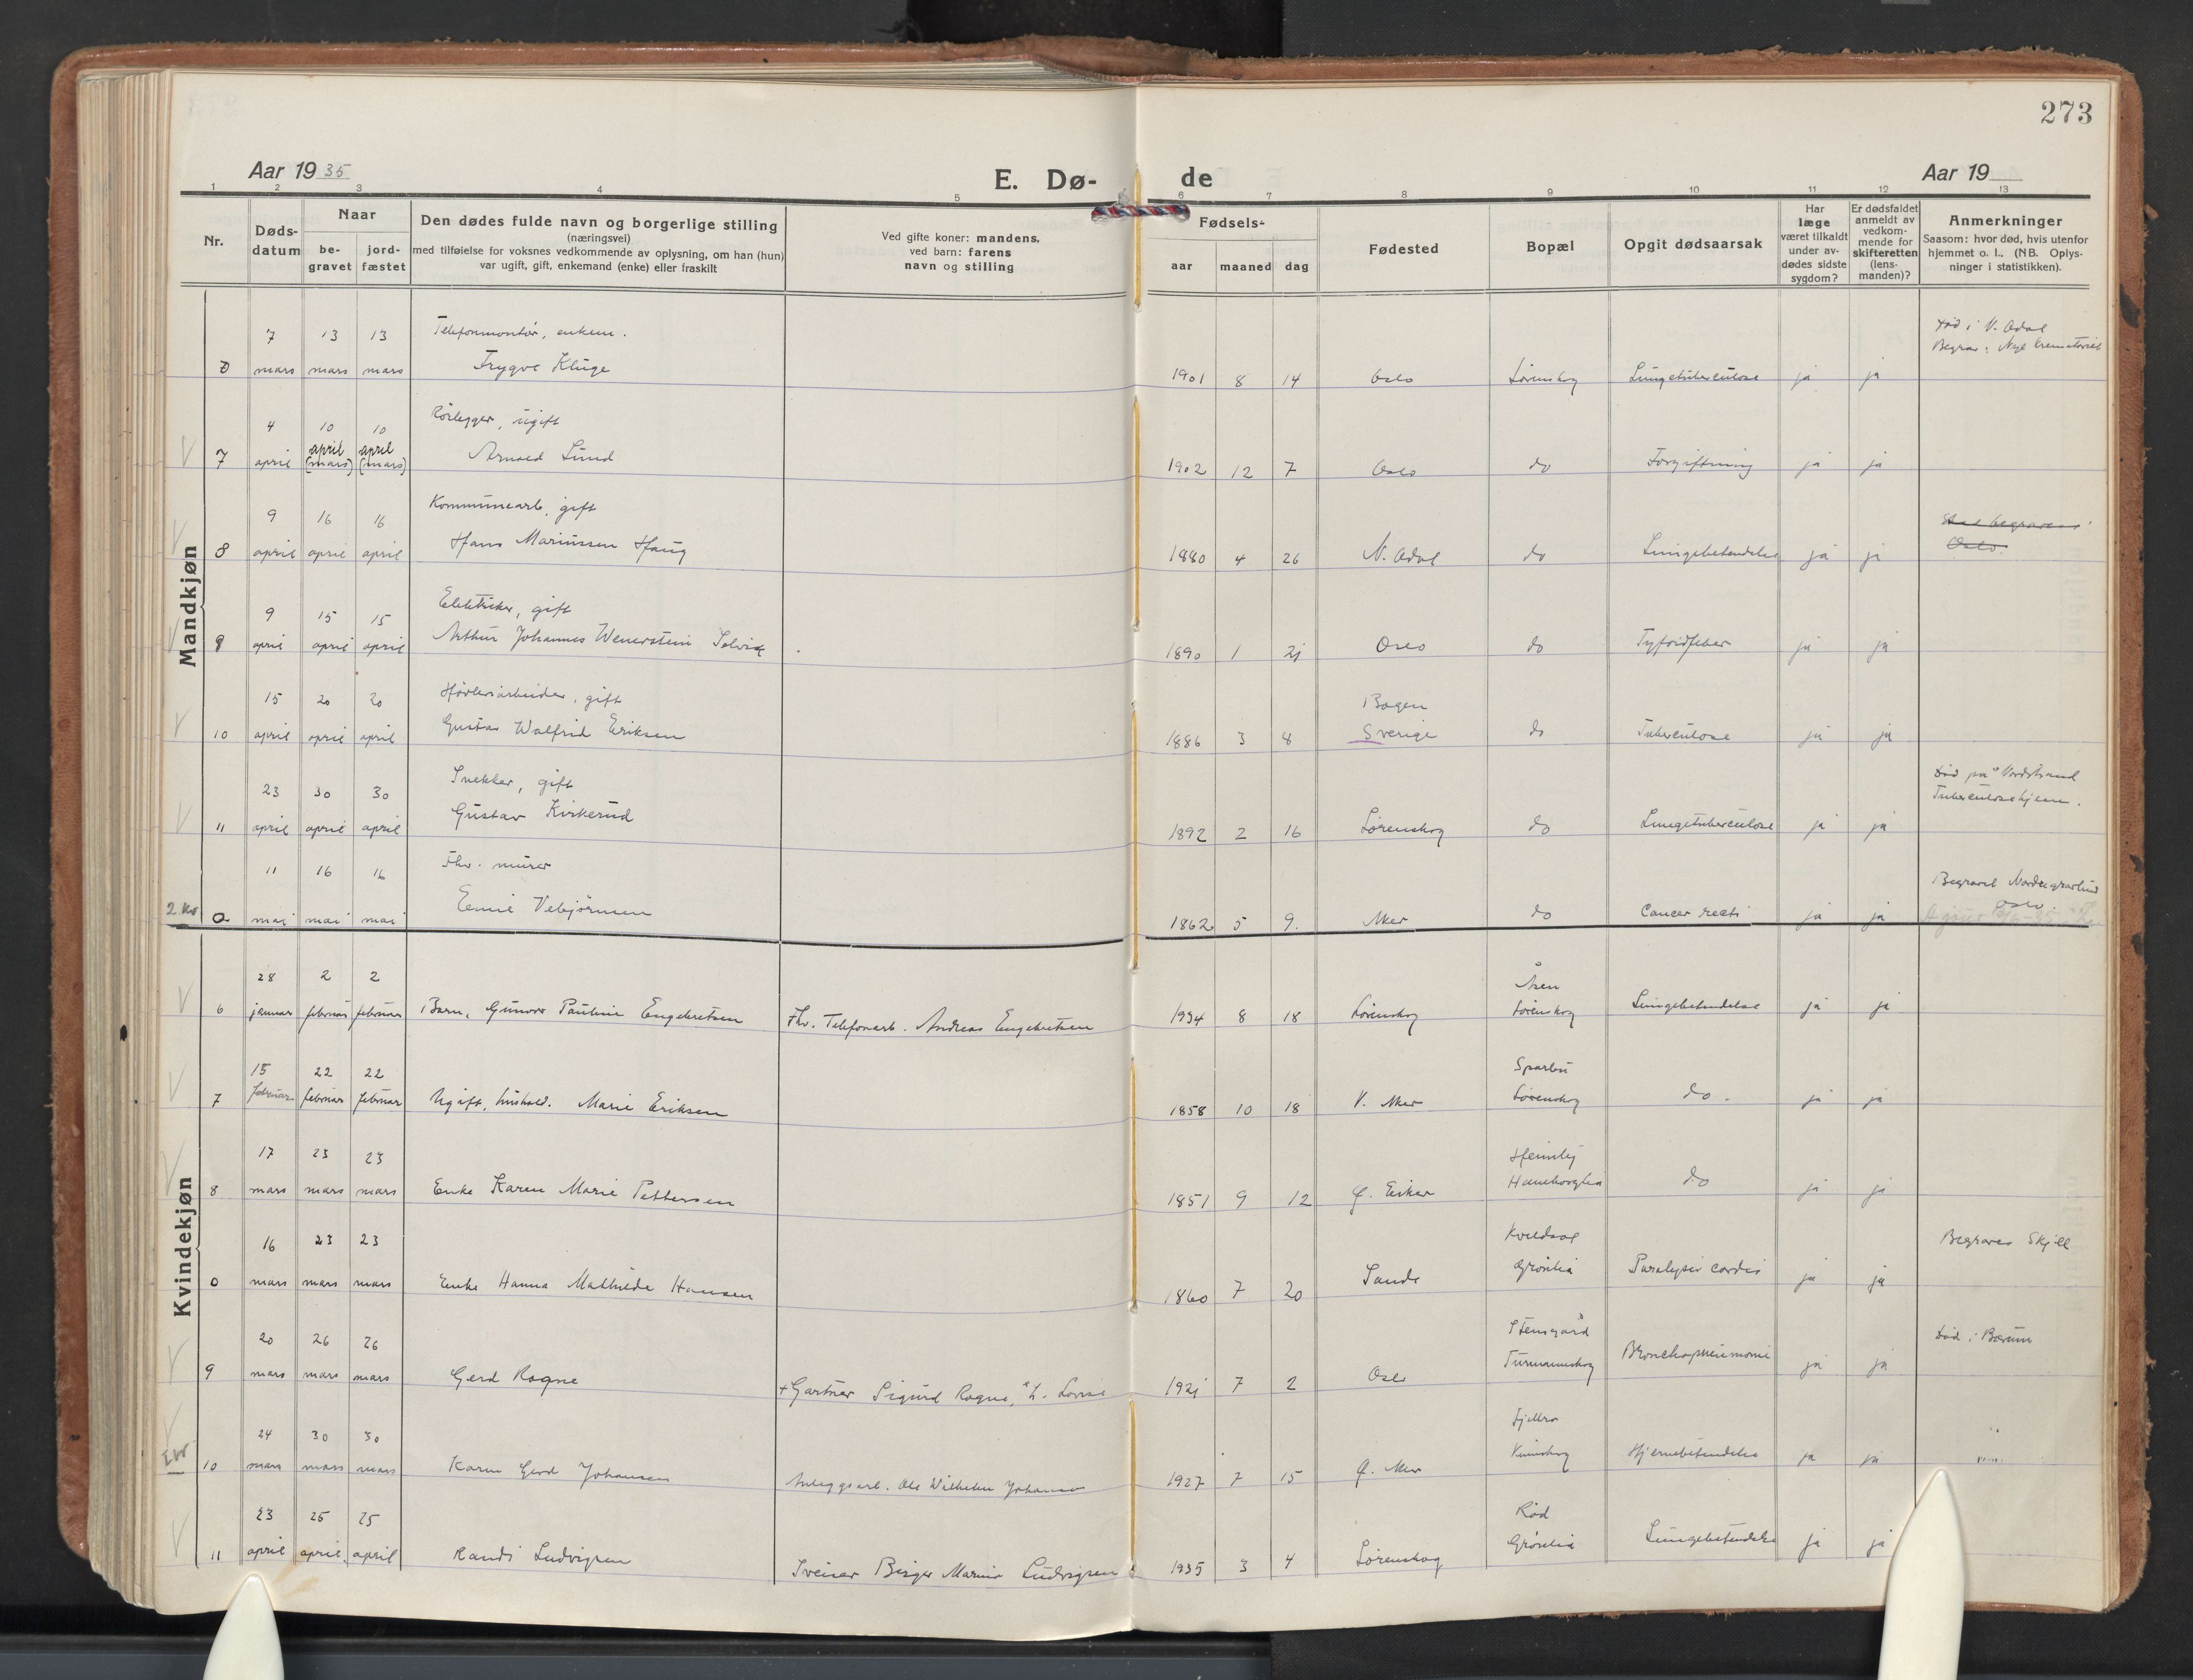 273
Aar 1935
E. Dø-
de
Aar 19
1 2 3 4 5 6 7 8 9 10 11 12 13
Nr.
Døds-
datum
Naar
be-
gravet
jord-
fæstet
Den dødes fulde navn og borgerlige stilling
(næringsvei)
med tilføielse for voksnes vedkommende av oplysning, om han (hun)
var ugift, gift, enkemand (enke) eller fraskilt
Ved gifte koner: mandens,
ved barn: farens
navn og stilling
Fødsels-
aar
maaned
dag
Fødested
Bopæl
Opgit dødsaarsak
Har
læge
været tilkaldt
under av-
dødes sidste
sygdom?
Er dødsfaldet
anmeldt av
vedkom-
mende for
skifteretten
(lens-
manden)?
Anmerkninger
Saasom: hvor død, hvis utenfor
hjemmet o. l., (NB. Oplys-
ninger i statistikken).
Mandkjøn
7 13 13 Telefonmontør, enkem. Død i V. Odal
Begrav. Nye Krematoriet
0 mars mars mars Trygve Kluge 1901 8 14 Oslo Lørenskog Lungetuberculose ja ja
4 10 10 Rørlegger, ugift
april april
7 april (mars) (mars) Arnold Lund 1902 12 7 Oslo do Forgiftning ja ja
9 16 16 Kommunearb. gift begraves
8 april april april Hans Mariussen Haug 1880 4 26 N. Odal do Lungebetendelse ja ja Oslo.
9 15 15 Elektriker, gift
9 april april april Arthur Johannes Wenerstein Solvik 1890 1 21 Oslo do Tyfoidfeber ja ja
15 20 20 Høvleriarbeider, gift Bogen
10 april april april Gustav Walfrid Eriksen 1886 3 8 Sverige do Tuberculose ja ja
23 30 30 Snekker, gift Død på Nordstrand
Tuberculosehjem.
11 april april april Gustav Kirkerud 1892 2 16 Lørenskog do Lungetuberculose ja ja
11 16 16 Fhv. murer Begravet Nordre gravlund
Oslo.
2 kv 0 mai mai mai Emil Vebjørnsen 1862 5 9. Aker do Cancer recti ja ja
Kvindekjøn
28 2 2 Åsen
6 januar februar februar Barn, Gunvor Pauline Engebretsen Fhv. Telefonarb. Andreas Engebretsen 1934 8 18 Lørenskog Lørenskog Lungebetendelse ja ja
15 22 22 Sparbu
7 februar februar februar Ugift, hushold. Marie Eriksen 1858 10 18 V. Aker Lørenskog do. ja ja
17 23 23 Heimly
8 mars mars mars Enke Karen Marie Pettersen 1851 9 12 Ø. Eiker Haneborglia do ja ja
16 23 23 Kveldsol Begraves Skjell
0 mars mars mars Enke Hanna Mathilde Hansen 1860 7 20 Sande Grønlia Paralysis cordis ja ja
20 26 26 Stensgård Død i Bærum
9 mars mars mars Gerd Rogne + Gartner Sigurd Rogne, 1921 7 2 Oslo Turmannskog Bronchopneumoni ja ja
24 30 30 Fjellbo
10 mars mars mars Karin Gerd Johansen Anleggsarb. Ole Wilhelm Johansen 1927 7 15 Ø. Aker Hjernebetendelse ja ja
23 25 25 Rød
11 april april. april Randi Ludvigsen Sveiser Birger Marius Ludvigsen 1935 3 4 Lørenskog Grønlia Lungebetendelse ja ja